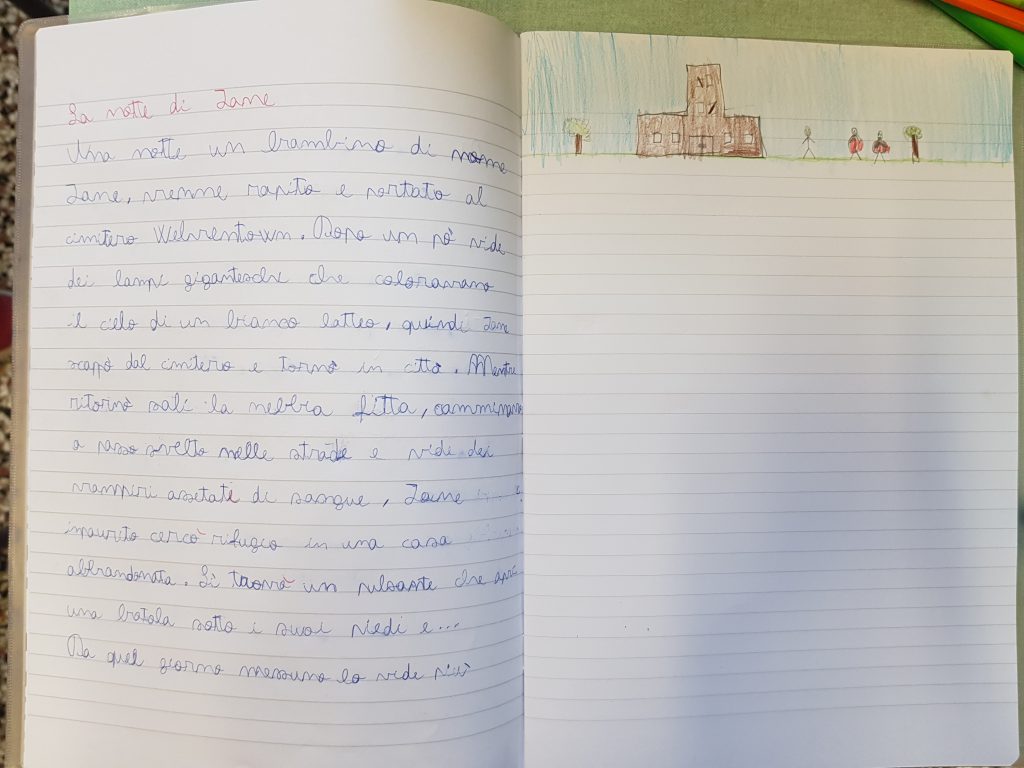 La notte di Jane
Una notte un bambino di nome
Jane, venne rapito e portato al
cimitero Welventown. Dopo un pò vide
dei lampi giganteschi che coloravano
il cielo di un bianco latteo, quindi Jane
scapò dal cimitero e tornò in città. Mentre
ritornò salì la nebbia fitta, camminano
a passo svelto nelle strade e vide dei
vampiri assetate di sangue, Jane
impaurito cercò rifugio in una casa
abbandonata. Li trovò un pulsante che aprì
una botola sotto i suoi piedi e...
Da quel giorno nessuno lo vide più